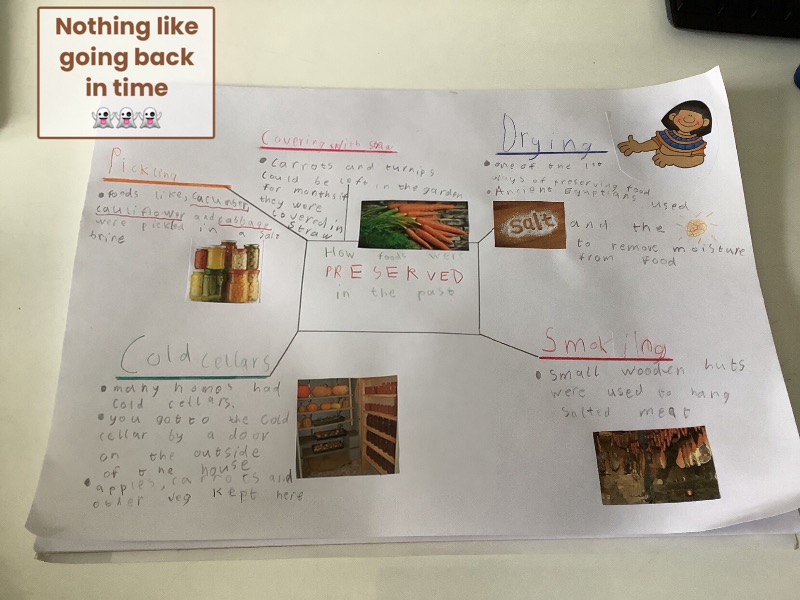 Nothing like
going back
in time
Pickling
• foods like, cacumber,
cauliflower and cabbage
were pickled in a salt
brine
Covering with straw
• Carrots and turnips
could be left in the garden
for months if
they were
covered in
straw
Drying
• one of the 1st
ways of preserving food
• Ancient Egyptians used
salt and the
to remove moisture
from food
How foods were
PRESERVED
in the past
Cold cellars
• many homes had
cold cellars.
• you got to the cold
cellar by a door
on the outside
of the house
• apples, carrots and
other veg kept here
Smoking
• small wooden huts
were used to hang
salted meat